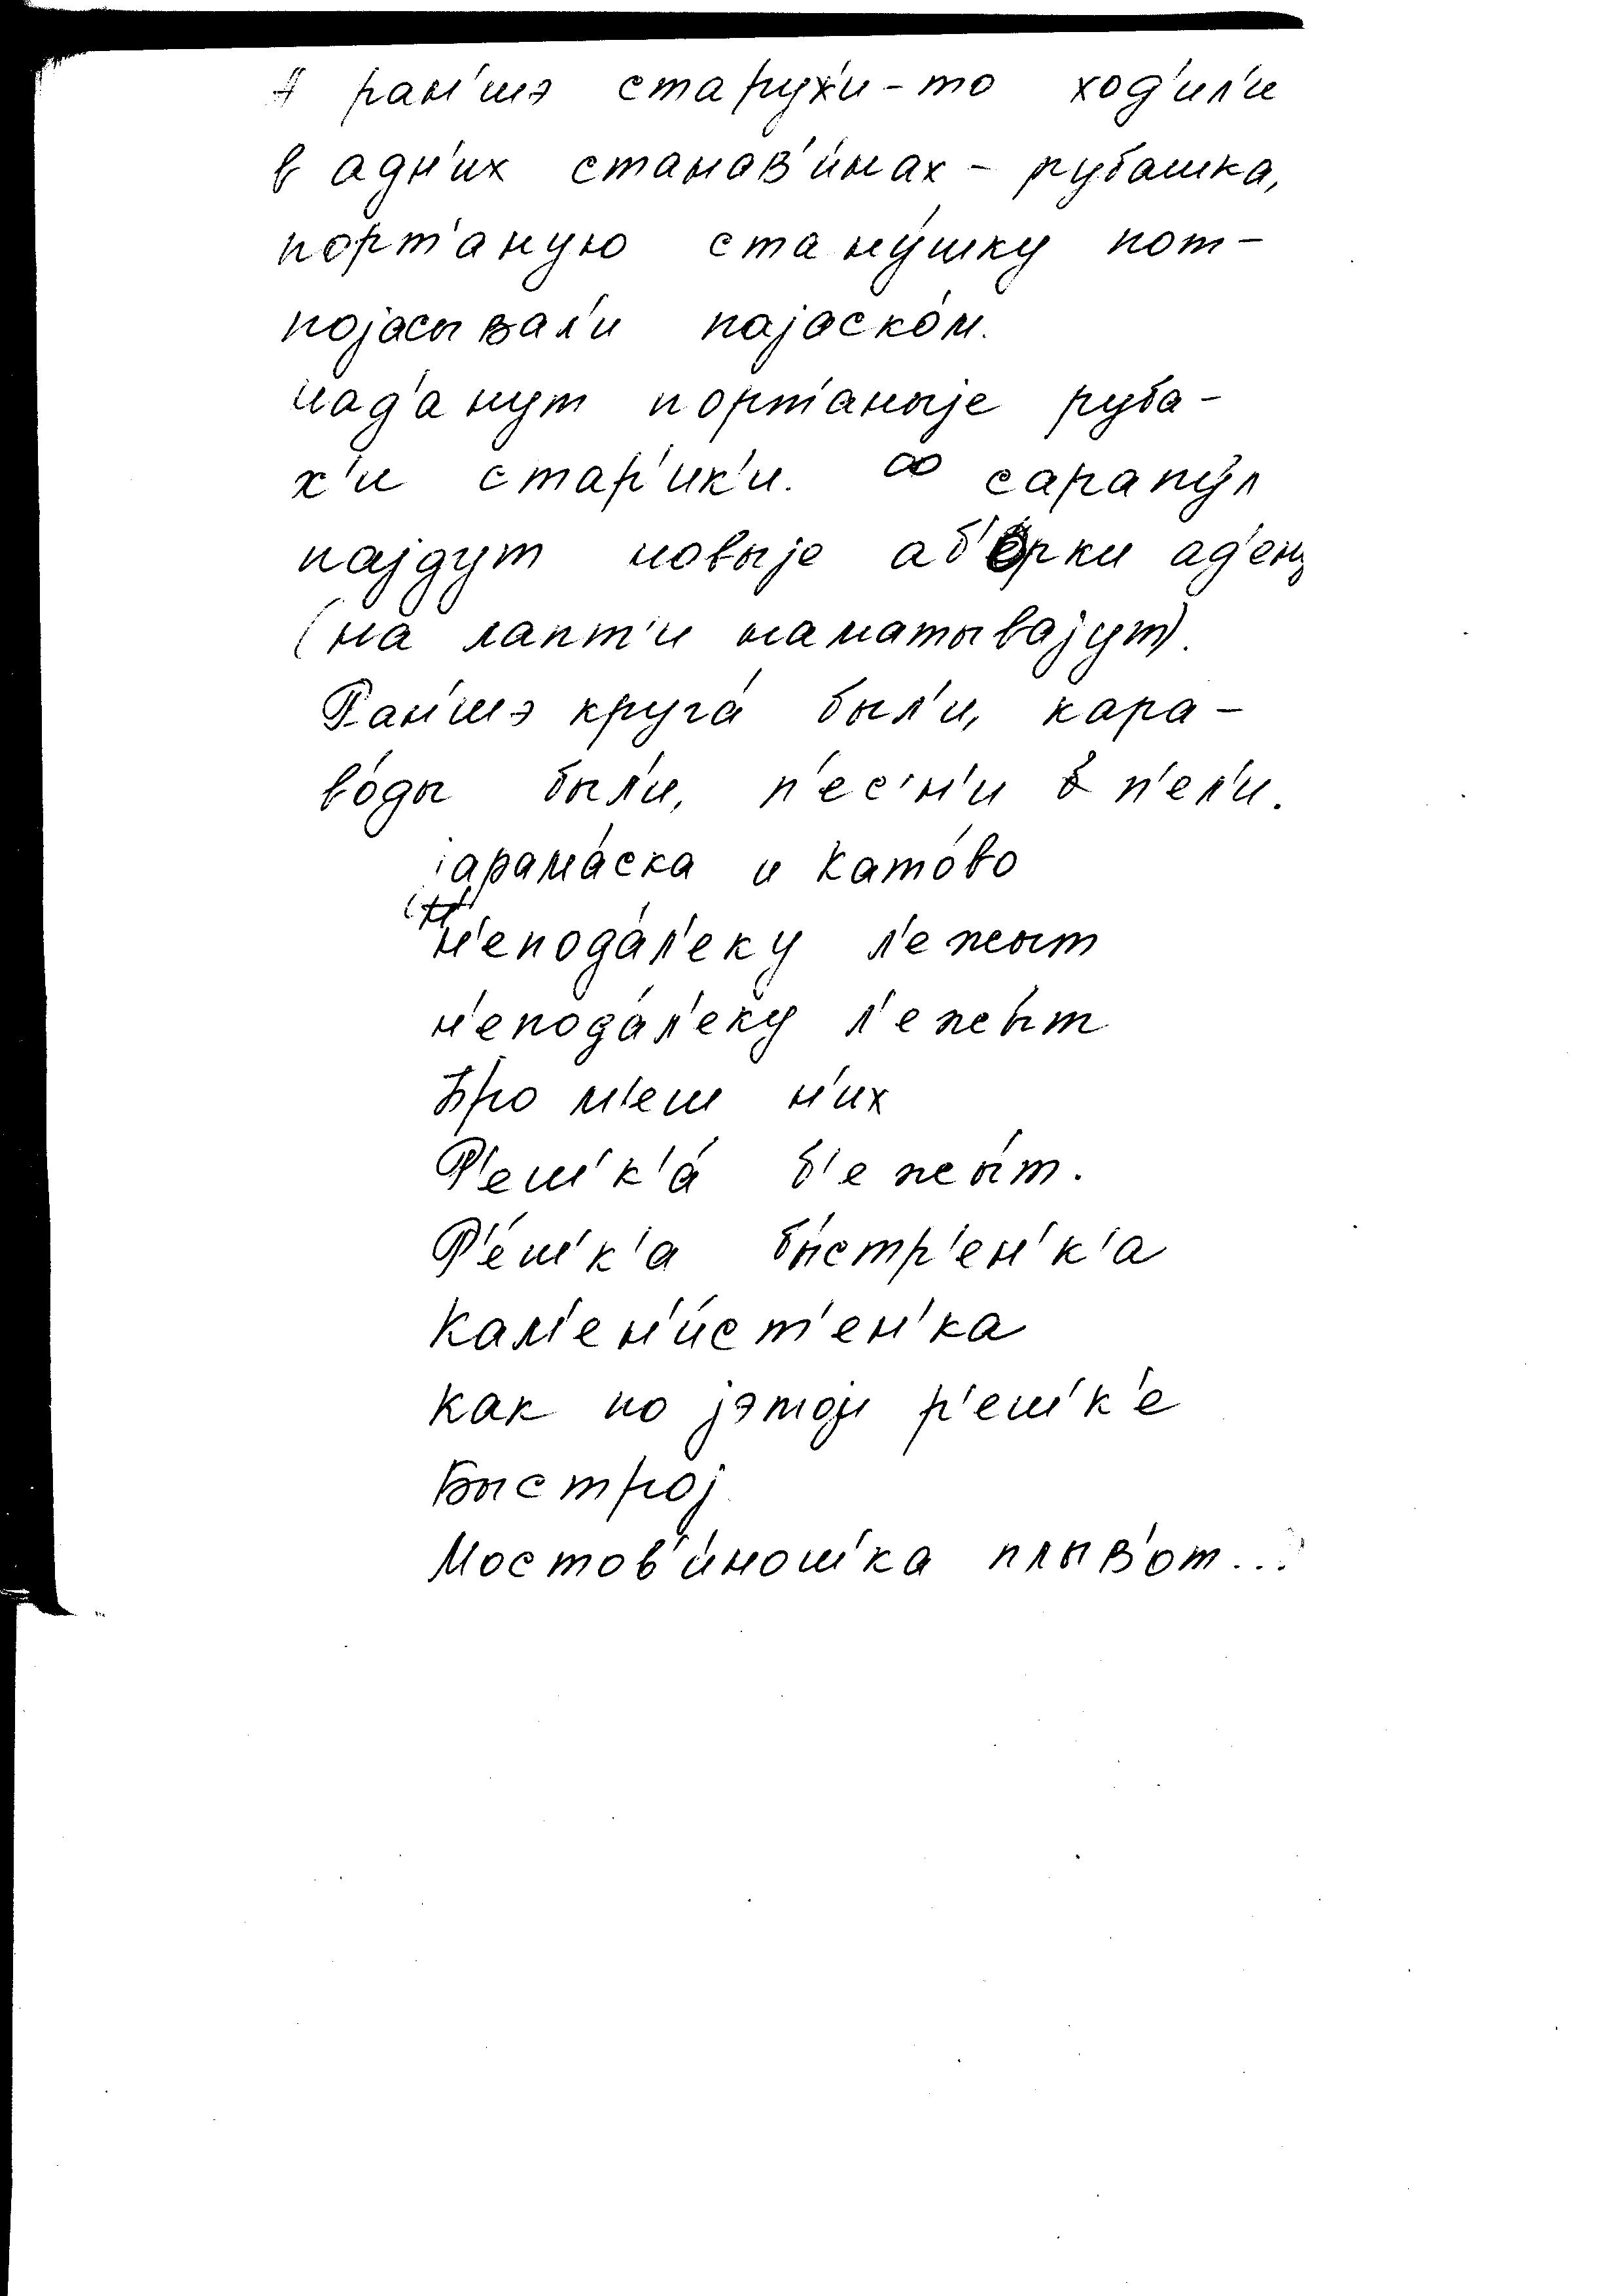 А ран'шэ старух'и-то ход'ил'и
в адн'их станав'и́нах - рубашка,
порт'аную стану́шку пот-
појасывал'и пајаско́м.
над'анут порт'аныје руба-
х'и стар'ик'и. ∞ сарапу́л
пајдут новыје аб'орки ад'енут
(на лапт'и наматывајут).
Ран'шэ круга́ был'и, кара-
во́ды был'и, п'ес'н'и п'ел'и.
јарама́ска и Като́во
н'епода́л'еку л'ежыт
н'епода́л'еку л'ежы́т
Про м'еш н'их
Р'еш'к'а́ б'ежы́т.
Р'е́ш'к'а бы́стр'ен'к'а
Кам'ен'и́ст'ен'ка
как по јэтој р'еш'к'е
Быстрој
Мостов'и́нош'ка плыв'от...